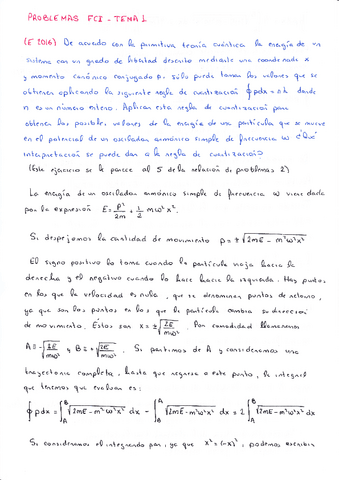 PROBLEMAS FCI - TEMA 1
(E 2016) De acuerdo con la primitiva teoría cuántica la energía de un
sistema con un grado de libertad descrito mediante una coordenada x
y momento canónico conjugado p, sólo puede tomar los valores que se
obtienen aplicando la siguiente regla de cuantización ∮ p dx = nh donde
n es un número entero. Aplicar esta regla de cuantización para
obtener los posibles valores de la energía de una partícula que se mueve
en el potencial de un oscilador armónico simple de frecuencia ω ¿Qué
interpretación se puede dar a la regla de cuantización?
(Este ejercicio se le parece al 5 de la relación de problemas 2)
La energía de un oscilador armónico simple de frecuencia ω viene dada
por la expresión E = p²/2m + 1/2 mω²x².
Si despejamos la cantidad de movimiento p = ± √(2mE - m²ω²x²)
El signo positivo lo toma cuando la partícula viaja hacia la
derecha y el negativo cuando lo hace hacia la izquierda. Hay puntos
en los que la velocidad es nula, que se denominan puntos de retorno,
ya que son los puntos en los que la partícula cambia su dirección
de movimiento. Estos son x = ± √(2E/mω²). Por comodidad llamaremos
A = -√(2E/mω²) y B = +√(2E/mω²). Si partimos de A y consideramos una
trayectoria completa, hasta que regresa a este punto, la integral
que tenemos que evaluar es:
∮ p dx = ∫_A^B √(2mE - m²ω²x²) dx - ∫_B^A √(2mE - m²ω²x²) dx = 2 ∫_A^B √(2mE - m²ω²x²) dx
Si consideramos el integrando par, ya que x² = (-x)², podemos escribir